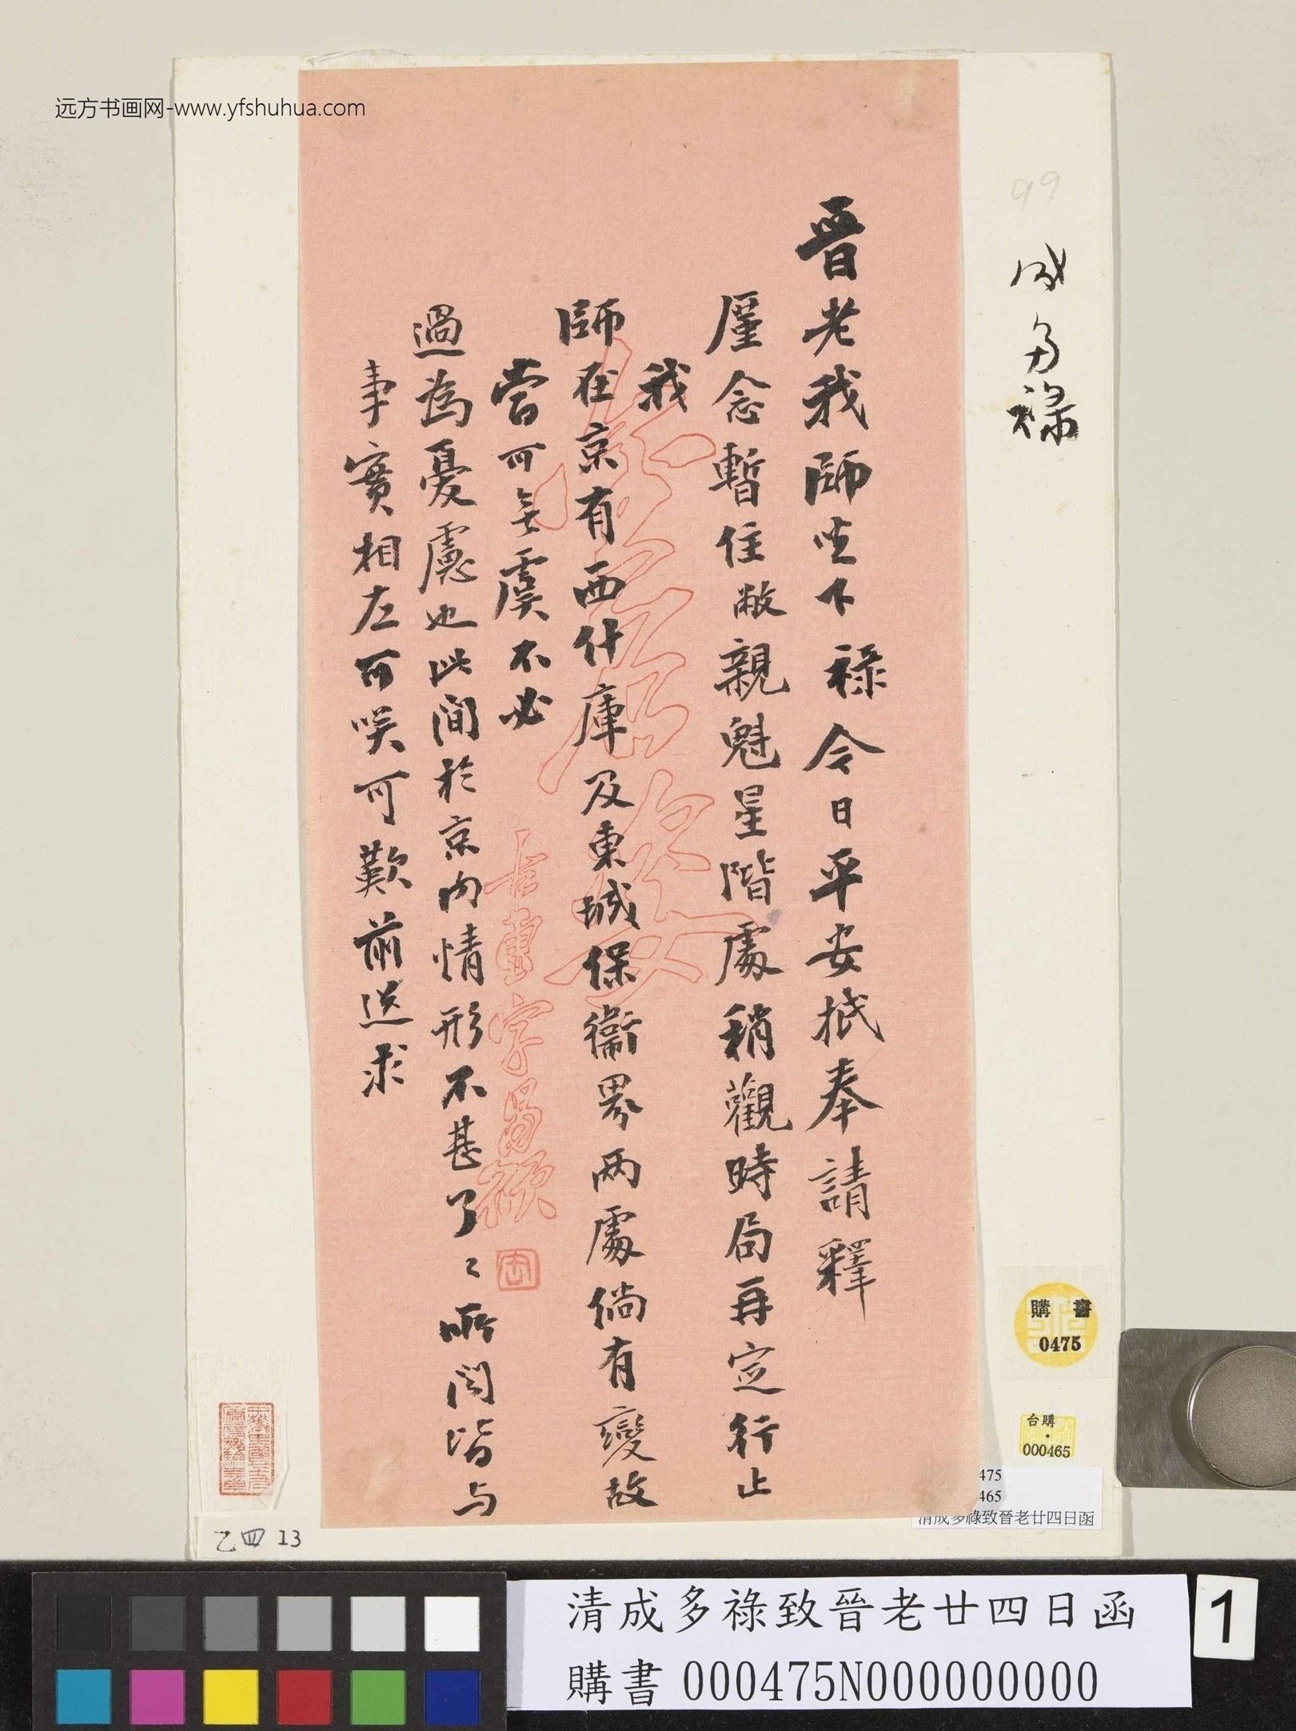 远方书画网-www.yfshuhua.com
99
成多祿
晉老我師坐下祿今日平安抵奉請釋
廑念暫住敝親魁星階處稍觀時局再定行止
我
師在京有西什庫及東城保衞界兩處倘有變故
當可無虞不必
過為憂慮也此間於京內情形不甚了〻所聞皆与
事實相左可咲可歎前送求
吉董字
購書
0475
台購
000465
475
465
清成多祿致晉老廿四日函
乙四13
清成多祿致晉老廿四日函
購書 000475N000000000
1